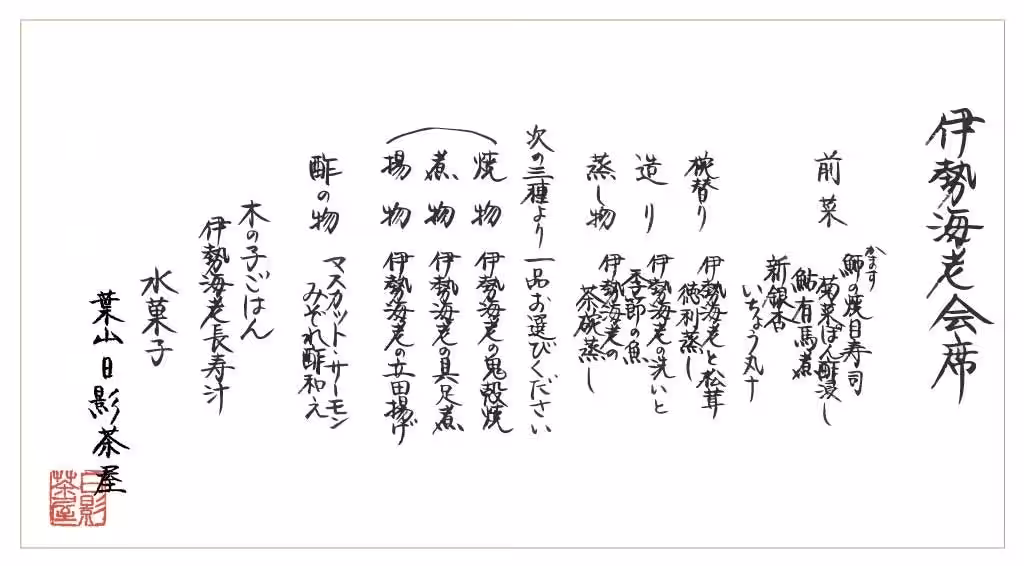 伊勢海老会席
前菜
かますの焼目寿司
菊菜ぽん酢浸し
鮎有馬煮
新銀杏
いちょう丸十
椀替り
伊勢海老と松茸
徳利蒸し
造り
伊勢海老の洗いと
季節の魚
蒸し物
伊勢海老の
茶碗蒸し
次の三種より一品お選びください
焼物 伊勢海老の鬼殻焼
煮物 伊勢海老の具足煮
揚物 伊勢海老の立田揚げ
酢の物
マスカット・サーモン
みぞれ酢和え
木の子ごはん
伊勢海老長寿汁
水菓子
葉山日影茶屋
日影茶屋